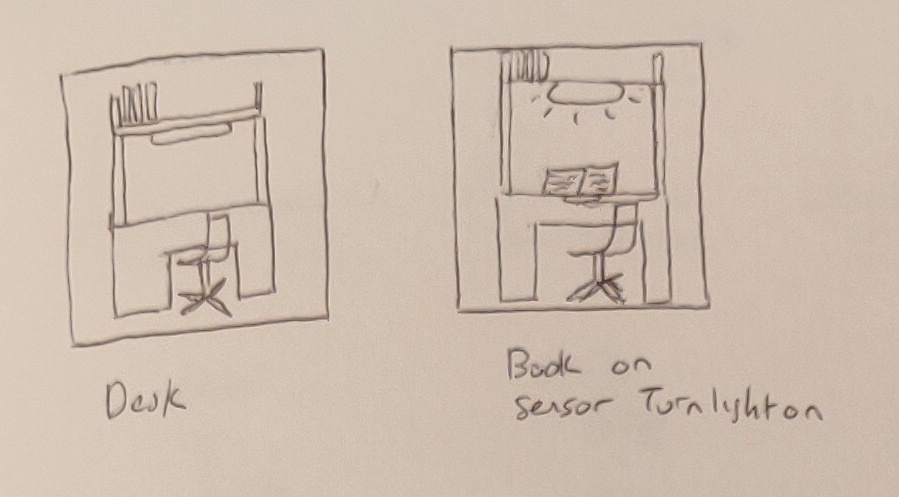 Desk
Book on
sensor Turn light on